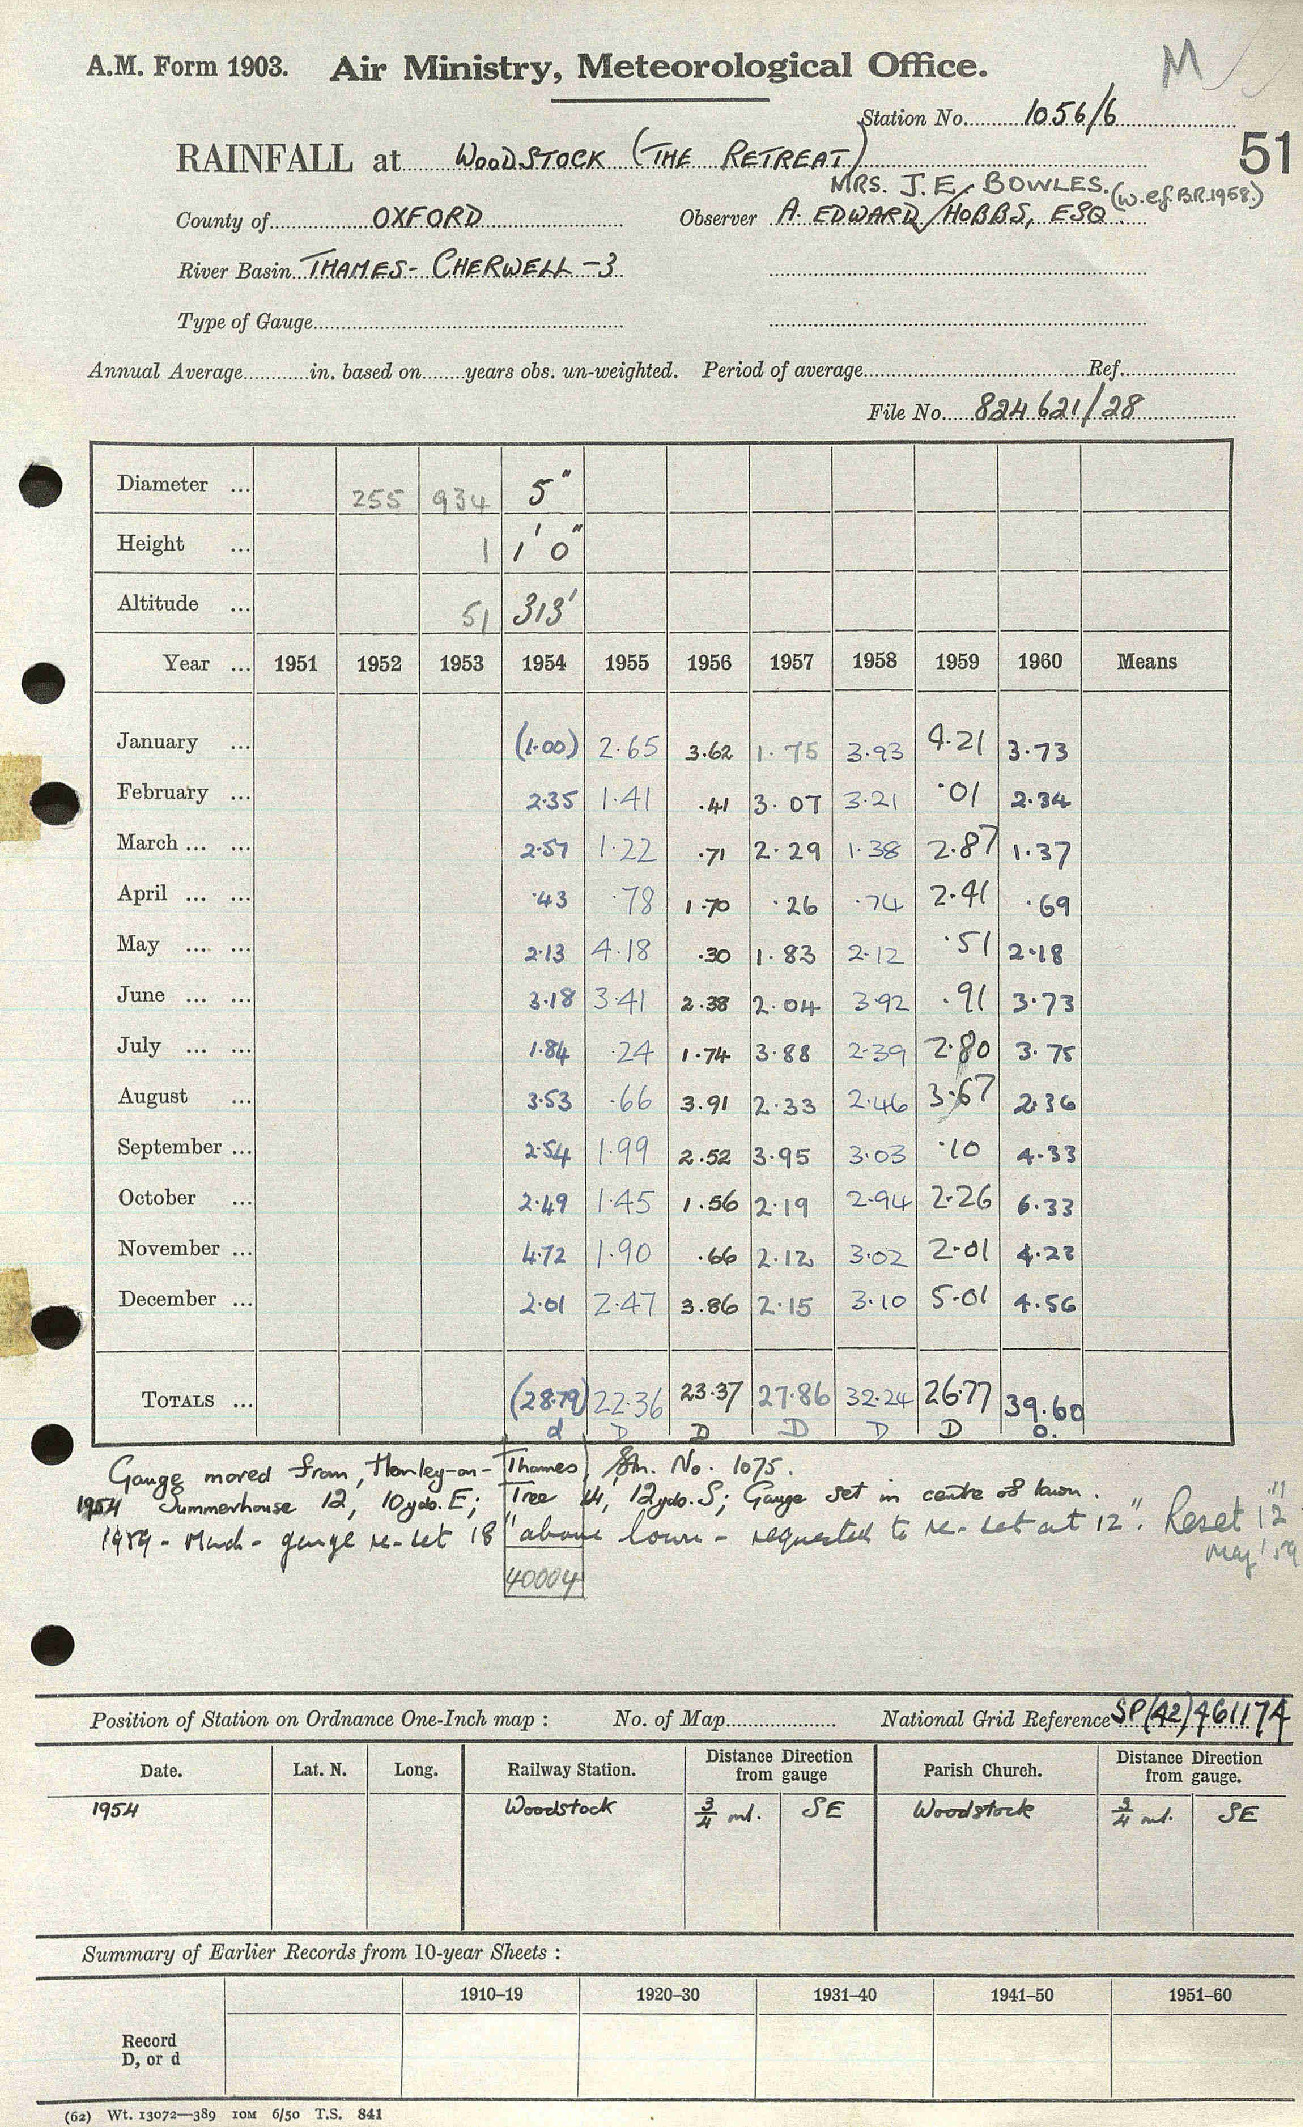 A.M. Form 1903. Air Ministry, Meteorological Office. M
Station No. 1056/6
51
RAINFALL at WOODSTOCK (THE RETREAT)
MRS. J. E. BOWLES. (w.e.f. B.R. 1958.)
County of OXFORD Observer A. EDWARD HOBBS, ESQ
River Basin THAMES - CHERWELL - 3
Type of Gauge
Annual Average in. based on years obs. un-weighted. Period of average Ref.
File No. 824621/28
Diameter ... 255 934 5"
Height ... 1 1' 0"
Altitude ... 51 313'
Year ... 1951 1952 1953 1954 1955 1956 1957 1958 1959 1960 Means
January ... (1.00) 2.65 3.62 1.75 3.93 4.21 3.73
February ... 2.35 1.41 .41 3.07 3.21 .01 2.34
March ... ... 2.57 1.22 .71 2.29 1.38 2.87 1.37
April ... ... .43 .78 1.70 .26 .74 2.41 .69
May ... ... 2.13 4.18 .30 1.83 2.12 .51 2.18
June ... ... 3.18 3.41 2.38 2.04 3.92 .91 3.73
July ... ... 1.84 .24 1.74 3.88 2.39 2.80 3.75
August ... 3.53 .66 3.91 2.33 2.46 3.67 2.36
September ... 2.54 1.99 2.52 3.95 3.03 .10 4.33
October ... 2.49 1.45 1.56 2.19 2.94 2.26 6.33
November ... 4.72 1.90 .66 2.12 3.02 2.01 4.22
December ... 2.01 2.47 3.86 2.15 3.10 5.01 4.56
TOTALS ... (28.79) 22.36 23.37 27.86 32.24 26.77 39.60
d D D D D D D.
Gauge moved from, Henley-on-Thames, Stn. No. 1075.
1954 Summerhouse 12, 10yds. E; Tree 14, 12yds. S; Gauge set in centre of lawn.
1959 - March - gauge re-set 18" above lawn - requested to re-set at 12". Reset 12"
May '59
40004
Position of Station on Ordnance One-Inch map : No. of Map National Grid Reference SP(42)461174
Date. Lat. N. Long. Railway Station. Distance Direction from gauge Parish Church. Distance Direction from gauge.
1954 Woodstock 3/4 ml. SE Woodstock 3/4 ml. SE
Summary of Earlier Records from 10-year Sheets :
1910–19 1920–30 1931–40 1941–50 1951–60
Record
D, or d
(62) Wt. 13072—389 10M 6/50 T.S. 841